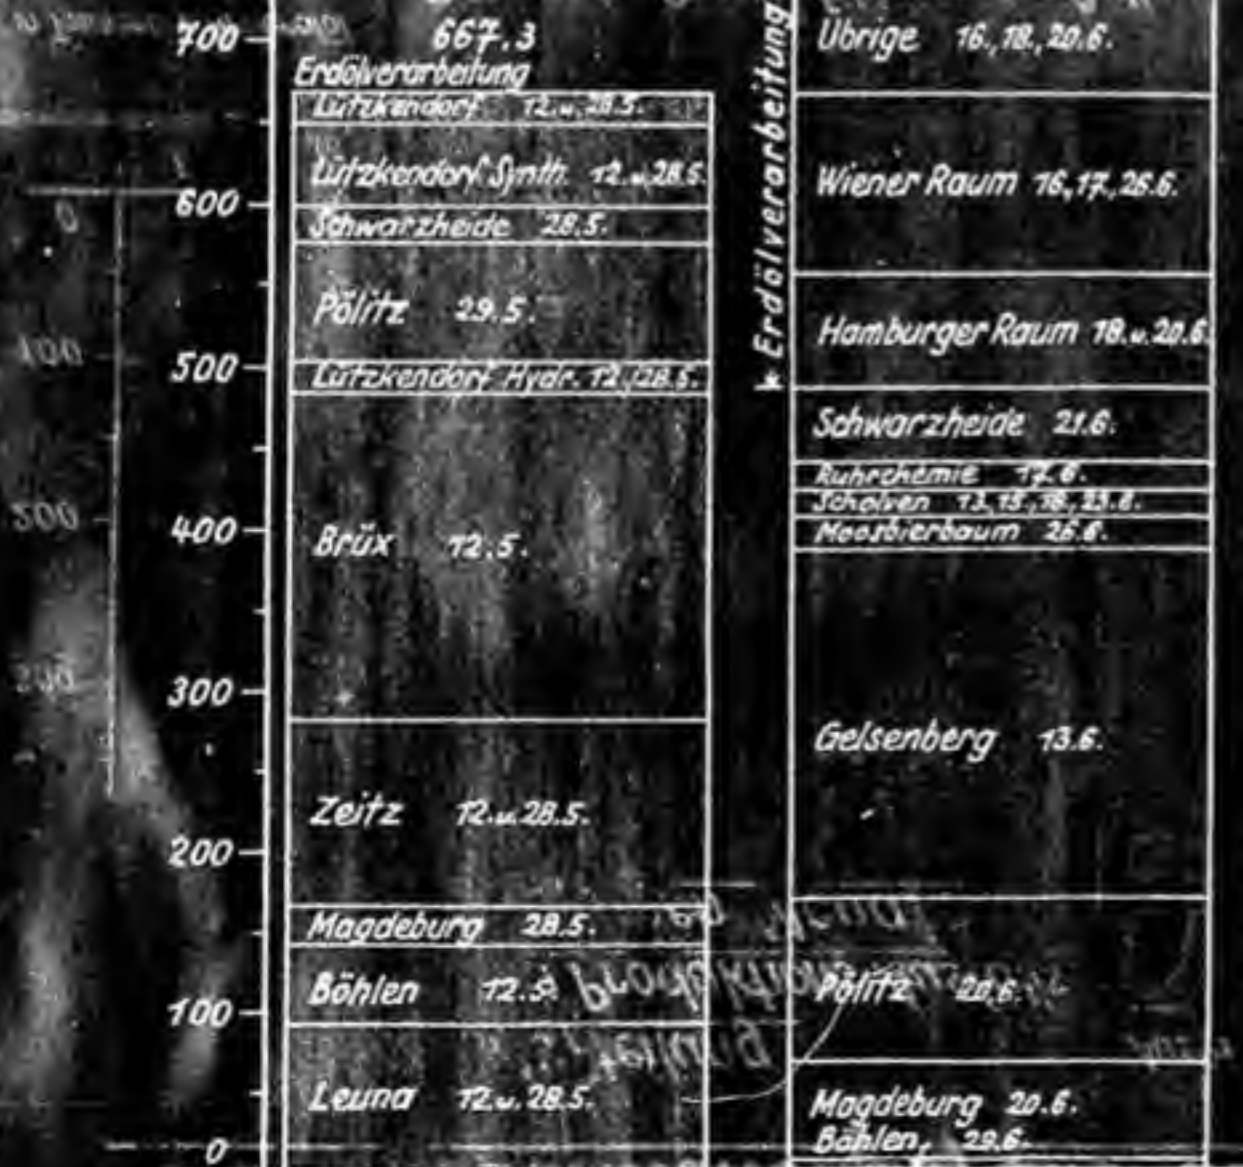 700
600
500
400
300
200
100
0
667.3
Erdölverarbeitung
Lützkendorf 12.u.28.5.
Lützkendorf Synth. 12.u.28.5.
Schwarzheide 28.5.
Pölitz 29.5.
Lützkendorf Hydr. 12./28.5.
Brüx 12.5.
Zeitz 12.u.28.5.
Magdeburg 28.5.
Böhlen 12.5.
Leuna 12.u.28.5.
Erdölverarbeitung
Übrige 16.,18.,20.6.
Wiener Raum 16.,17.,26.6.
Hamburger Raum 18.u.20.6.
Schwarzheide 21.6.
Ruhrchemie 17.6.
Scholven 13.,15.,18.,23.6.
Moosbierbaum 26.6.
Gelsenberg 13.6.
Pölitz 20.6.
Magdeburg 20.6.
Böhlen, 29.6.